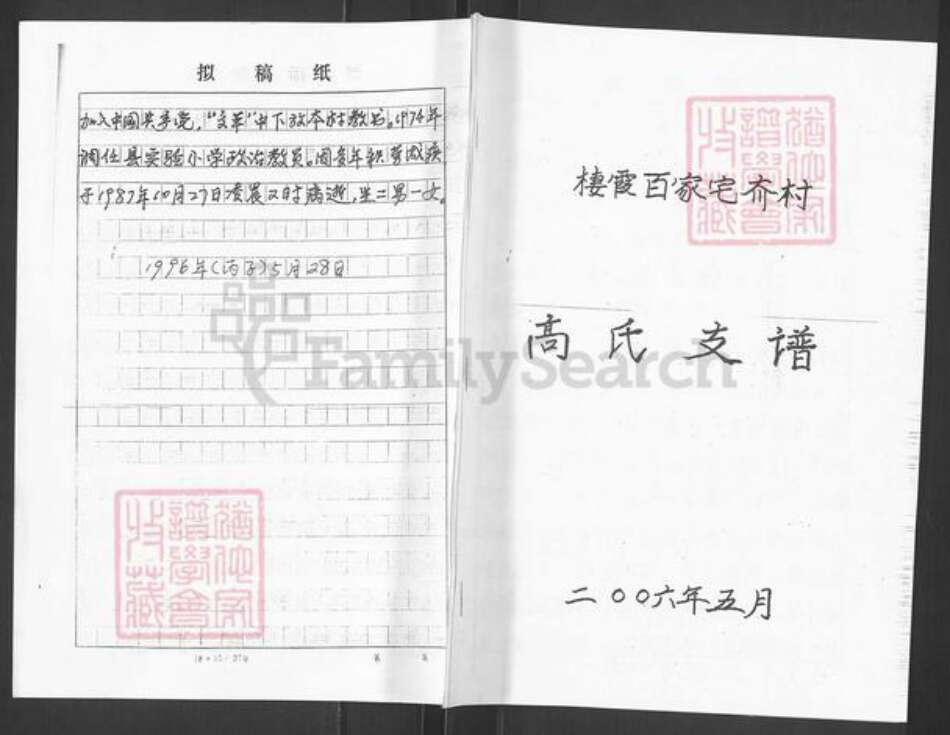 拟稿纸
加入中国共产党，"文革"中下放本村教书。1974年
调任县实验小学政治教员。因多年积劳成疾
于1987年10月27日凌晨2时病逝，生二男一女。
1996年(丙子)5月28日
棲霞百家宅齐村
高氏支谱
二〇〇六年五月
FamilySearch